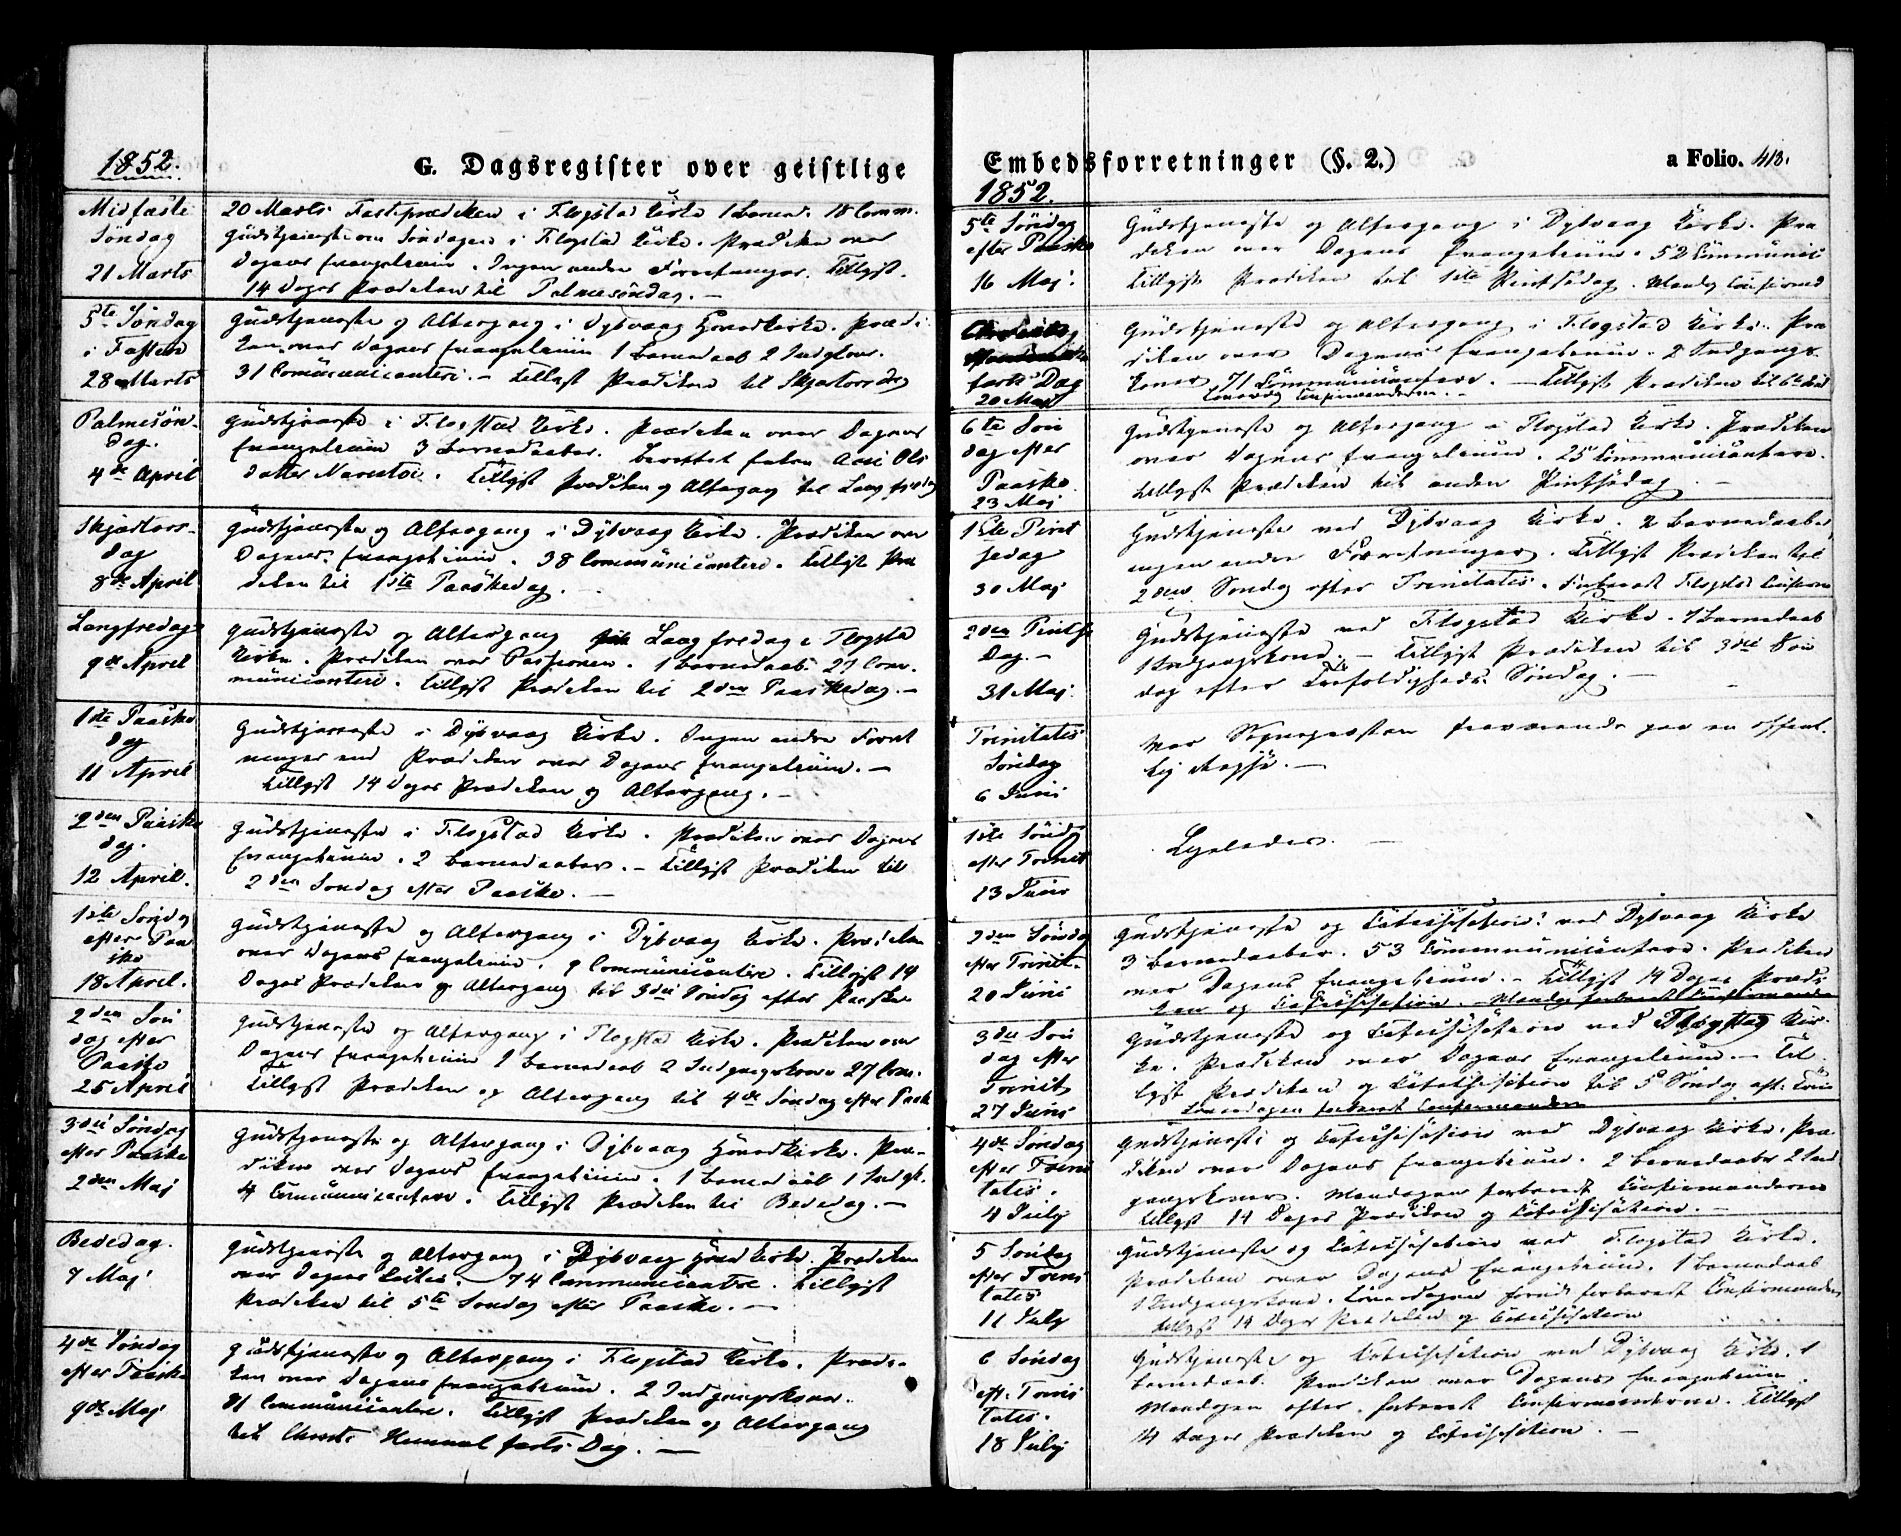 1852.
G. Dagsregister over geistlige
Midfaste
Søndag
21 Marts
20 Marts Fasteprædiken i Flogstad Kirke 1 Barned. 18 Comm.
Gudstjeneste om Søndagen i Flogstad Kirke. Prædiken over
Dagens Evangelium. Ingen andre Forretninger. Tillyst
14 Dages Prædiken til Palmesøndag. —
5te Søndag
i Fasten
28 Marts
Gudstjeneste og Altergang i Dybvaag Hovedkirke. Prædi
ken over Dagens Evangelium 1 Barnedaab 2 Indgkoner.
31 Communicantere. — Tillyst Prædiken til Skjærtorsdag
Palmesøn-
dag.
4de April
Gudstjeneste i Flogstad Kirke. Prædiken over Dagens
Evangelium 3 Barnedaaber. Berettet Ols
datter. Tillyst Prædiken og Altergang til Langfredag
Skjærtors-
dag
8de April
Gudstjeneste og Altergang i Dybvaag Kirke. Prædiken over
Dagens Evangelium. 38 Communicantere. Tillyst Præ
diken til 1ste Paaskedag. —
Langfredag
9de April
Gudstjeneste og Altergang Langfredag i Flogsta
Kirke. Prædiken over Passionen. 1 Barnedaab 27 Com-
municantere. Tillyst Prædiken til 2den Paaskedag. —
1ste Paaske
dag
11 April
Gudstjeneste i Dybvaag Kirke. Ingen andre Forret
ninger end Prædiken over Dagens Evangelium. —
Tillyst 14 Dages Prædiken og Altergang. —
2den Paaske
dag.
12 April.
Gudstjeneste i Flogstad Kirke. Prædiken over Dagens
Evangelium. 2 Barnedaaber. — Tillyst Prædiken til
2den Søndag efter Paaske. —
1ste Søndag
efter Paa
ske
18 April.
Gudstjeneste og Altergang i Dybvaag Kirke. Prædiken
over Dagens Evangelium. 9 Communicantere. Tillyst 14
Dages Prædiken og Altergang til 3die Søndag efter Paaske
2den Søn
dag efter
Paaske
25 April
Gudstjeneste og Altergang i Flogsta Kirke. Prædiken over
Dagens Evangelium 1 Barnedaab 2 Indgangskoner 27 Com.
Tillyst Prædiken og Altergang til 4de Søndag efter Paask
3die Søndag
efter Paaske
2den Maj
Gudstjeneste og Altergang i Dybvaag Hovedkirke. Præ-
diken over Dagens Evangelium. 1 Barnedaab 1 Indgk.
4 Communicantere. Tillyst Prædiken til Bededag. —
Bededag.
7 Maj
Gudstjeneste og Altergang i Dybvaag Hovedkirke. Prædiken
over Dagens Textes. 74 Communicantere. Tillyst
Prædiken til 5te Søndag efter Paaske. —
4de Søndag
efter Paaske
9de Maj
Gudstjeneste og Altergang i Flogstad Kirke. Prædi-
ken over Dagens Evangelium. 2 Indgangskoner.
81 Communicantere. Tillyst Prædiken og Altergang
til Christi Himmelfarts Dag. —
Embedsforretninger (§. 2.)
a Folio. 418.
1852.
5te Søndag
efter Paaske
16 Maj.
Gudstjeneste og Altergang i Dybvaag Kirke. Præ
diken over Dagens Evangelium. 52 Communic
Tillyst Prædiken til 1ste Pintsedag.
farts Dag
20 Maj
Gudstjeneste og Altergang i Flogstad Kirke. Præ
diken over Dagens Evangelium. 2 Indgangs-
koner 71 Communicantere. — Tillyst Prædiken til 6te Sønd
6te Søn
dag efter
Paaske
23 Maj
Gudstjeneste og Altergang i Flogstad Kirke. Prædiken
over Dagens Evangelium. 25 Communicantere.
Tillyst Prædiken til anden Pintsedag. —
1ste Pint
sedag
30 Maj
Gudstjeneste ved Dybvaag Kirke. 2 Barnedaaber,
ingen andre Forretninger. Tillyst Prædiken til
2den Søndag efter Trinitatis. Forberedt Flogstad Confirm
2den Pintse
Dag. —
31 Maj.
Gudstjeneste ved Flogstad Kirke. 1 Barnedaab
1 Indgangskone. — Tillyst Prædiken til 3die Søn
dag efter Trefoldigheds Søndag. —
Trinitatis
Søndag
6 Juni
Var Sognepræsten fraværende paa en offent-
lig Rejse. —
1ste Søndg
efter Trinit
13 Juni
Ligeledes. —
2den Søndag
efter Trinit.
20 Juni
Gudstjeneste og Catechisation ved Dybvaag Kirke
3 Barnedaaber. 53 Communicantere. Prædiken
over Dagens Evangelium. — Tillyst 14 Dages Prædi
ken og Catechisation. — Mandag forberedt Confirmande
3die Søn
dag efter
Trinit
27 Juni
Gudstjeneste og Catechisation ved Flogstad Kir-
ke. Prædiken over Dagens Evangelium. — Til
lyst Prædiken og Catechisation til 5 Søndag eft. Trin
Løverdagen forberedt Confirmanderne
4de Søndag
efter Trini
tatis.
4 July
Gudstjeneste og Catechisation ved Dybvaag Kirke. Præ
diken over Dagens Evangelium. 2 Barnedaaber 2 Ind
gangskoner. Mandagen forberedt Confirmanderne
Tillyst 14 Dages Prædiken og Catechisation. —
5 Søndag
efter Trini
tatis
11 July
Gudstjeneste og Catechisation ved Flogstad Kirke.
Prædiken over Dagens Evangelium. 1 Barnedaab
1 Indgangskone. Løverdagen forud forberedt Confirmanden
Tillyst 14 Dages Prædiken og Catechisation
6 Søndag
eft. Trini
tatis.
18 July
Gudstjeneste og Catechisation ved Dybvaag Kirke. 1
Barnedaab. Prædiken over Dagens Evangelium.
Mandagen efter forberedt Confirmanderne. Tillyst
14 Dages Prædiken og Catechisation. —